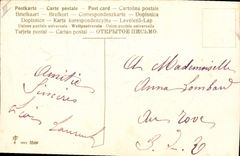 Postkarte — Carte postale — Post card — Cartolina postale
Briefkaart — Brefkort — Correspondenzkarte — Dopisnice
Dopisnica — Karta korespondencyjna — Levelező-Lap
Union postale universelle — Weltpostverein — Unión postal universal
Tarjeta postal — Cartão postal — ОТКРЫТОЕ ПИСЬМО.
Amitié
Sincères
Laurent
A Mademoiselle
Anna Lombard
Au Rove